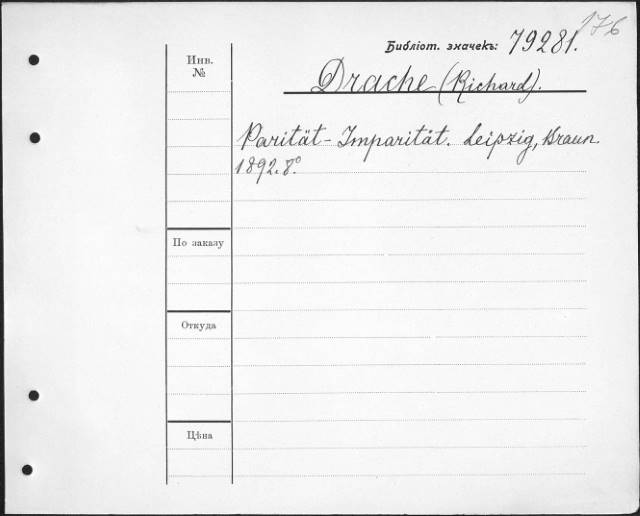 176
Библіот. значекъ: 79281.
Инв. №
Drache (Richard).
Parität-Imparität. Leipzig, Braun.
1892. 8º
По заказу
Откуда
Цѣна